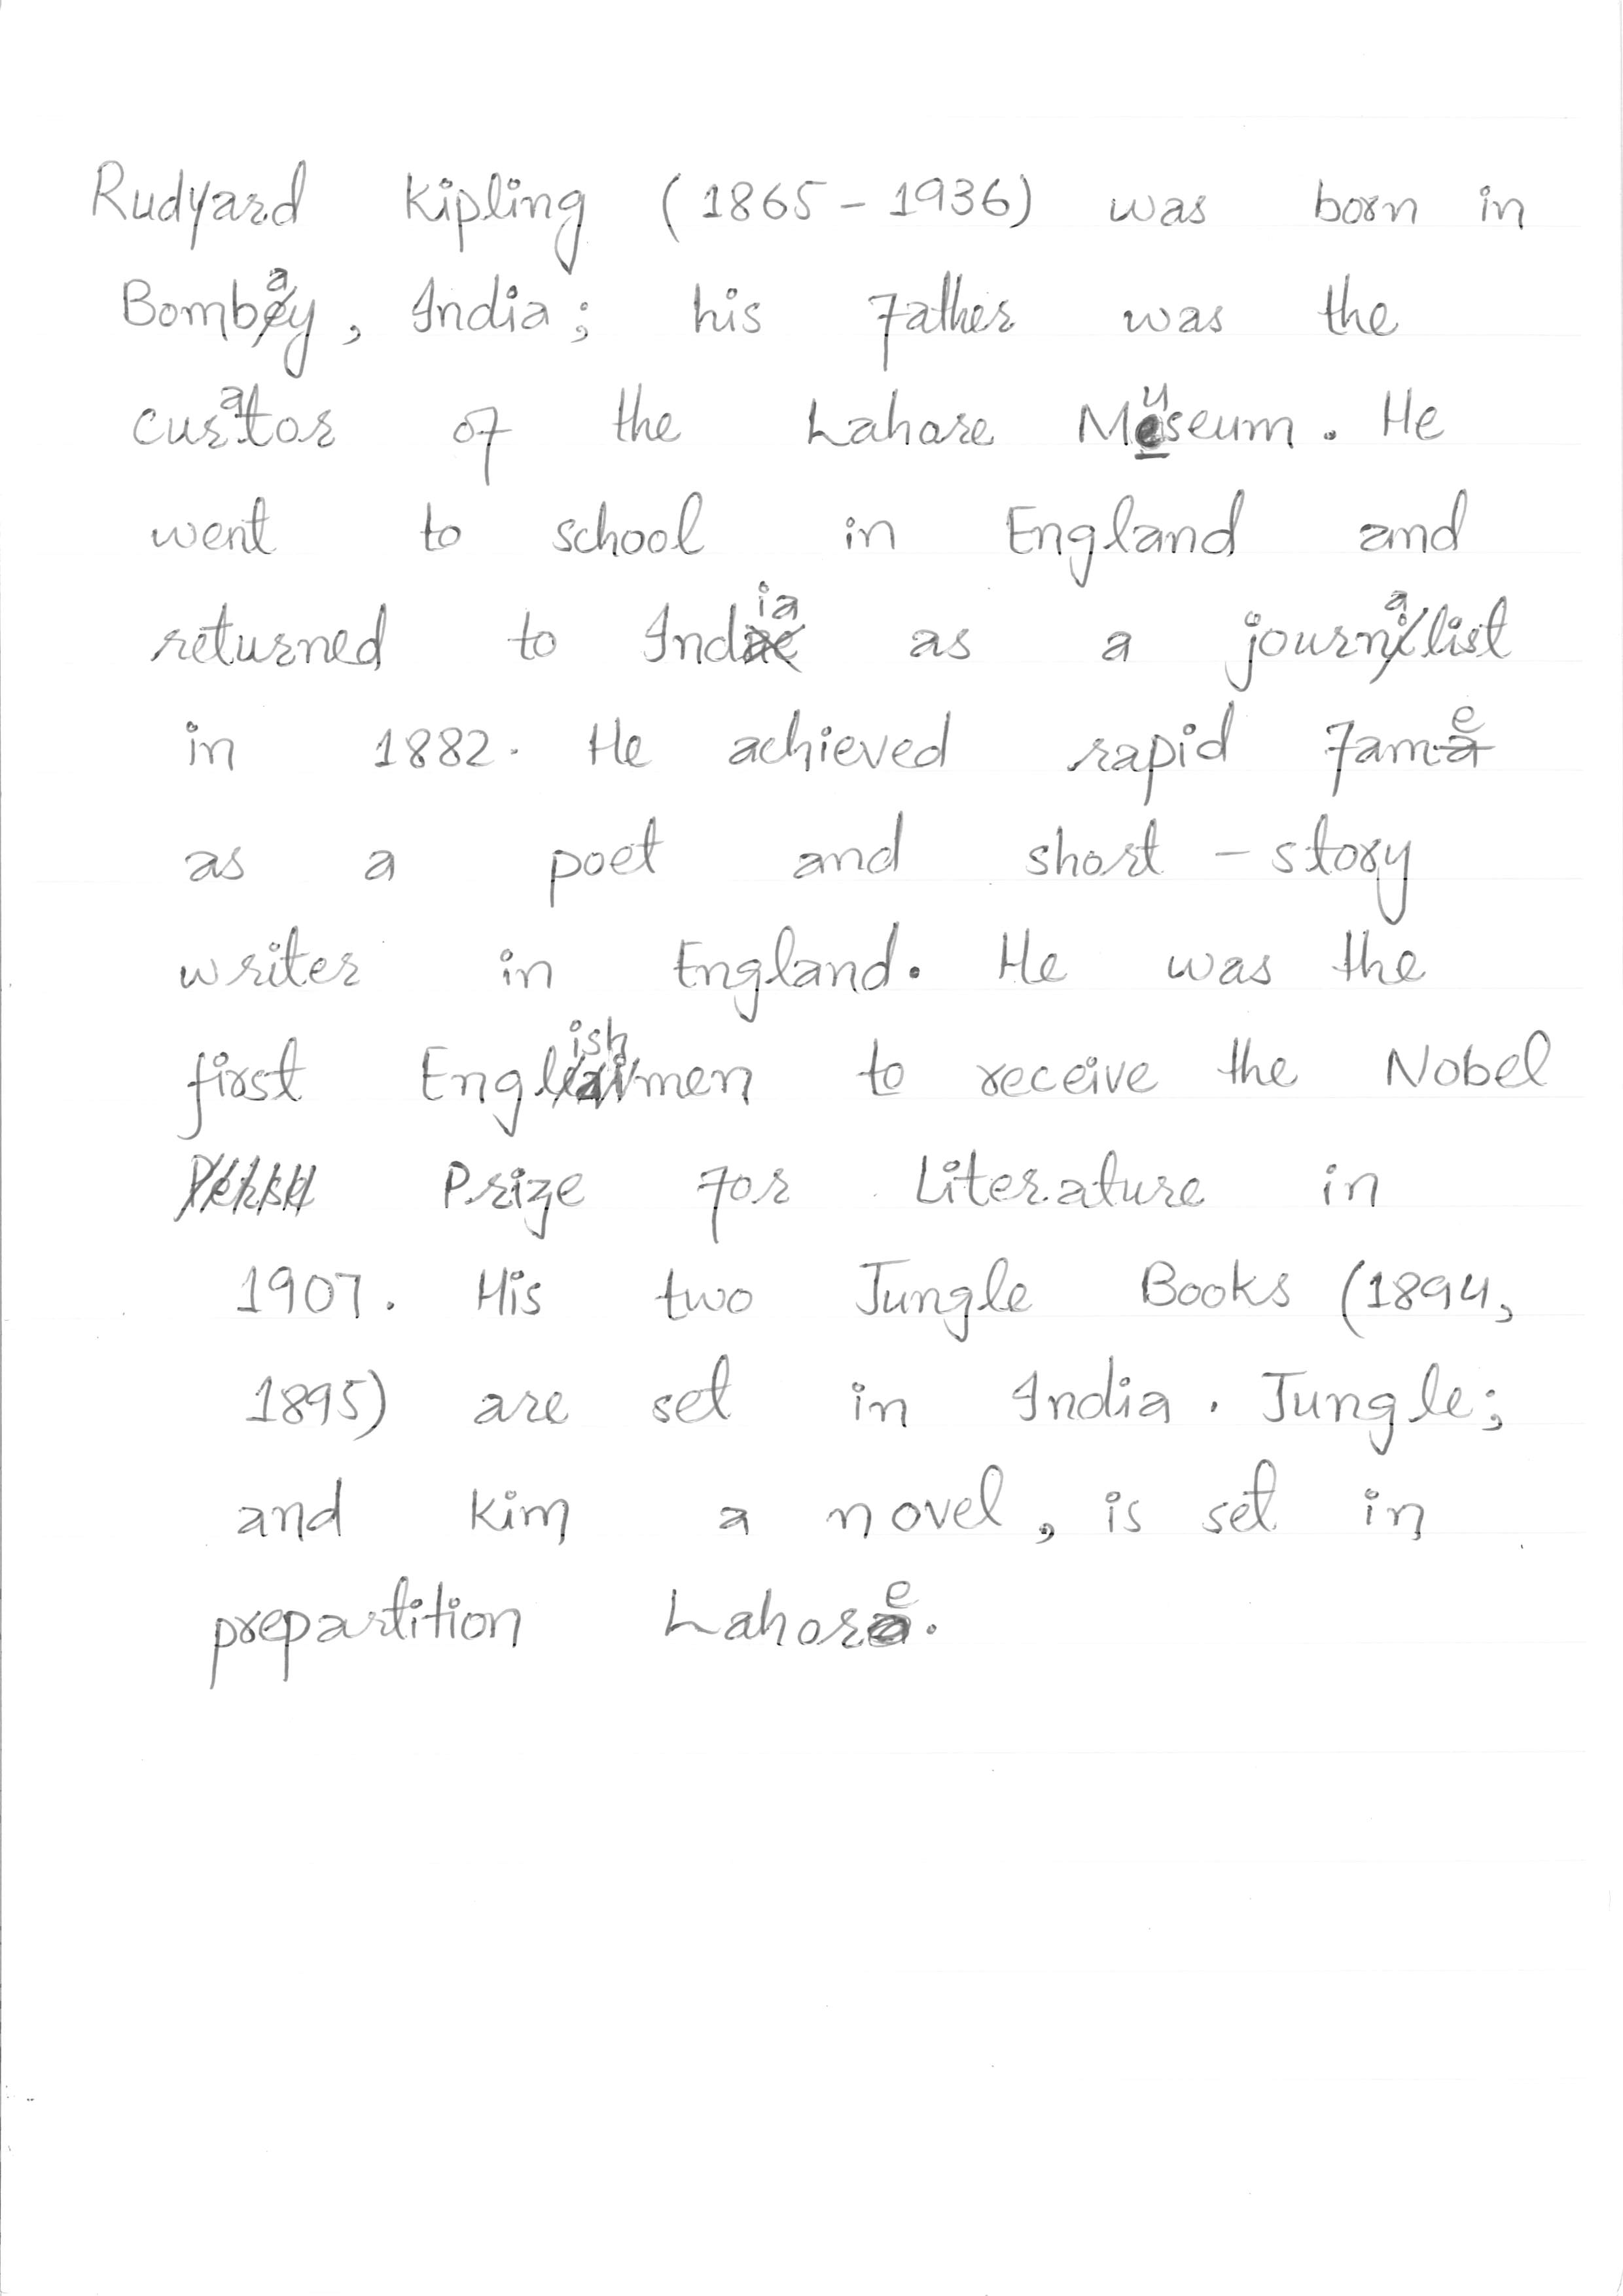 Rudyard Kipling (1865-1936) was born in
Bombay, India; his Father was the
curator of the Lahore Museum. He
went to school in England and
returned to India as a journalist
in 1882. He achieved rapid Fame
as a poet and short-story
writer in England. He was the
first Englishmen to receive the Nobel
Prize For Literature in
1907. His two Jungle Books (1894,
1895) are set in India. Jungle;
and Kim a novel, is set in
prepartition Lahore.